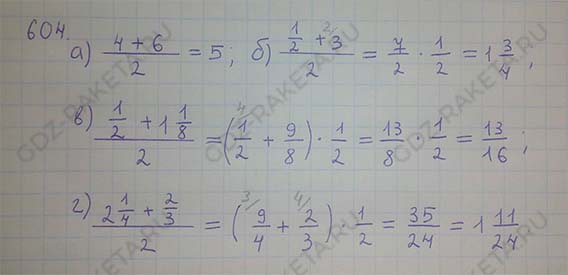 604.
а) (4 + 6)/2 = 5; б) (1/2 + 3)/2 = 7/2 · 1/2 = 1 3/4;
в) (1/2 + 1 1/8)/2 = (1/2 + 9/8) · 1/2 = 13/8 · 1/2 = 13/16;
г) (2 1/4 + 2/3)/2 = (9/4 + 2/3) · 1/2 = 35/24 = 1 11/24
GDZ-RAKETA.RU